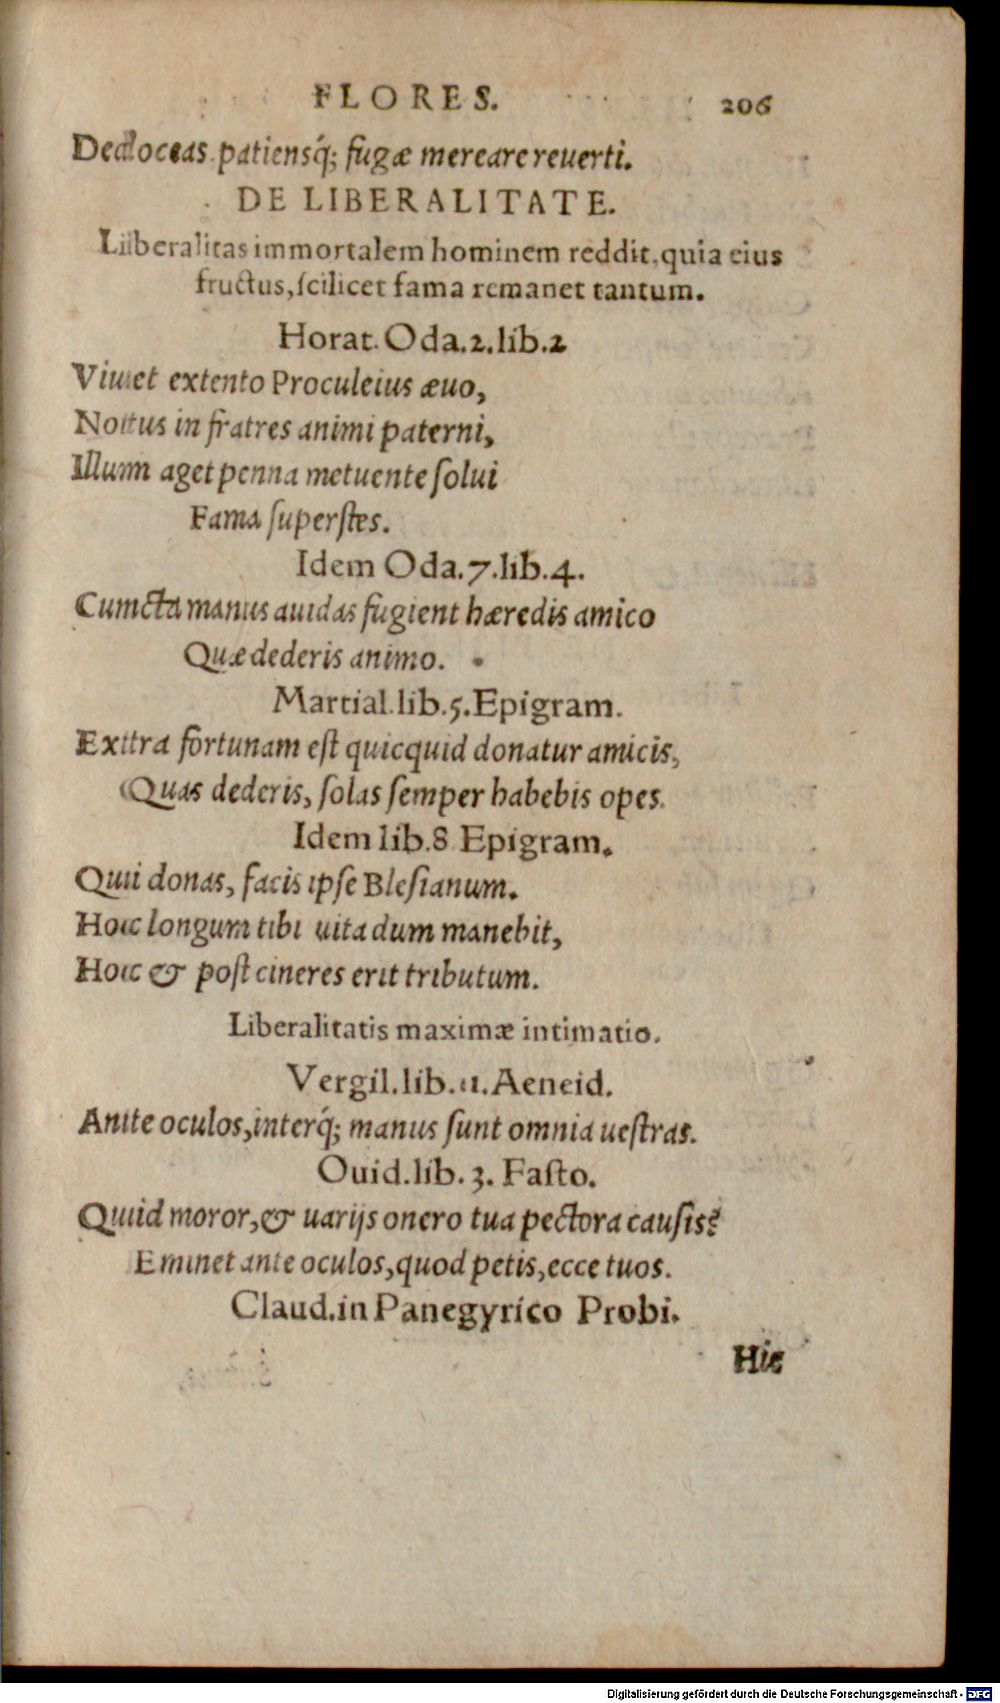 FLORES. 206
Dedoceas patiensq́; fugæ mereare reuerti.
DE LIBERALITATE.
Liberalitas immortalem hominem reddit, quia eius
fructus, scilicet fama remanet tantum.
Horat. Oda. 2. lib. 2
Viuet extento Proculeius æuo,
Nottus in fratres animi paterni,
Illum aget penna metuente solui
Fama superstes.
Idem Oda. 7. lib. 4.
Cuncta manus auidas fugient hæredis amico
Quæ dederis animo.
Martial. lib. 5. Epigram.
Extra fortunam est quicquid donatur amicis,
Quas dederis, solas semper habebis opes.
Idem lib. 8 Epigram.
Qui donas, facis ipse Blesianum.
Hoc longum tibi uita dum manebit,
Hoc & post cineres erit tributum.
Liberalitatis maximæ intimatio.
Vergil. lib. 11. Aeneid.
Ante oculos, interq́; manus sunt omnia uestras.
Ouid. lib. 3. Fasto.
Quid moror, & uarijs onero tua pectora causis?
Eminet ante oculos, quod petis, ecce tuos.
Claud. in Panegyrico Probi.
Hic
Digitalisierung gefördert durch die Deutsche Forschungsgemeinschaft - DFG